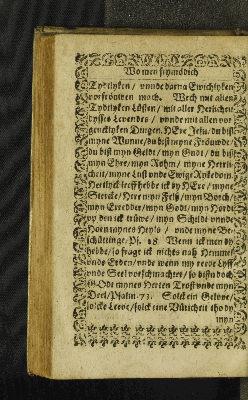 Wo men seymödich
Tydtlyken / vnnde darna Ewichlyken
vorfröuwen mach. Wech mit allen
Tydtlyken Lüsten / mit aller Herlicheit
dysses Levendes / vnnde mit allen vor
gencklyken Dingen. HEre Jesu / du bist
myne Wunne / du bist myne Fröuwde /
du bist myn Geldt / myn Gudt / du bist
myn Ehre / myn Rohm / myne Herli-
cheit / myne Lust vnde Ewige Rykedom.
Hertlyck leeff hebbe ick dy HEre / myne
Stercke / Here myn Felß / myn Borch /
myn Erredder / myn Godt / myn Hordt
vp den ick trüwe / myn Schildt vnnde
Horn mynes Heyls / vnde myne Be-
schüttinge. Ps. 18. Wenn ick men dy
hebbe / so frage ick nichts nah Hemmel
vnde Erden / vnde wenn my rede Lyff
vnde Seel vorschmachtet / so bistu doch
GOdt mynes Herten Trost vnde myn
Deel / Psalm. 73. Solck ein Gelove /
solcke Leeve / solck eine Vüricheit tho dy
myn